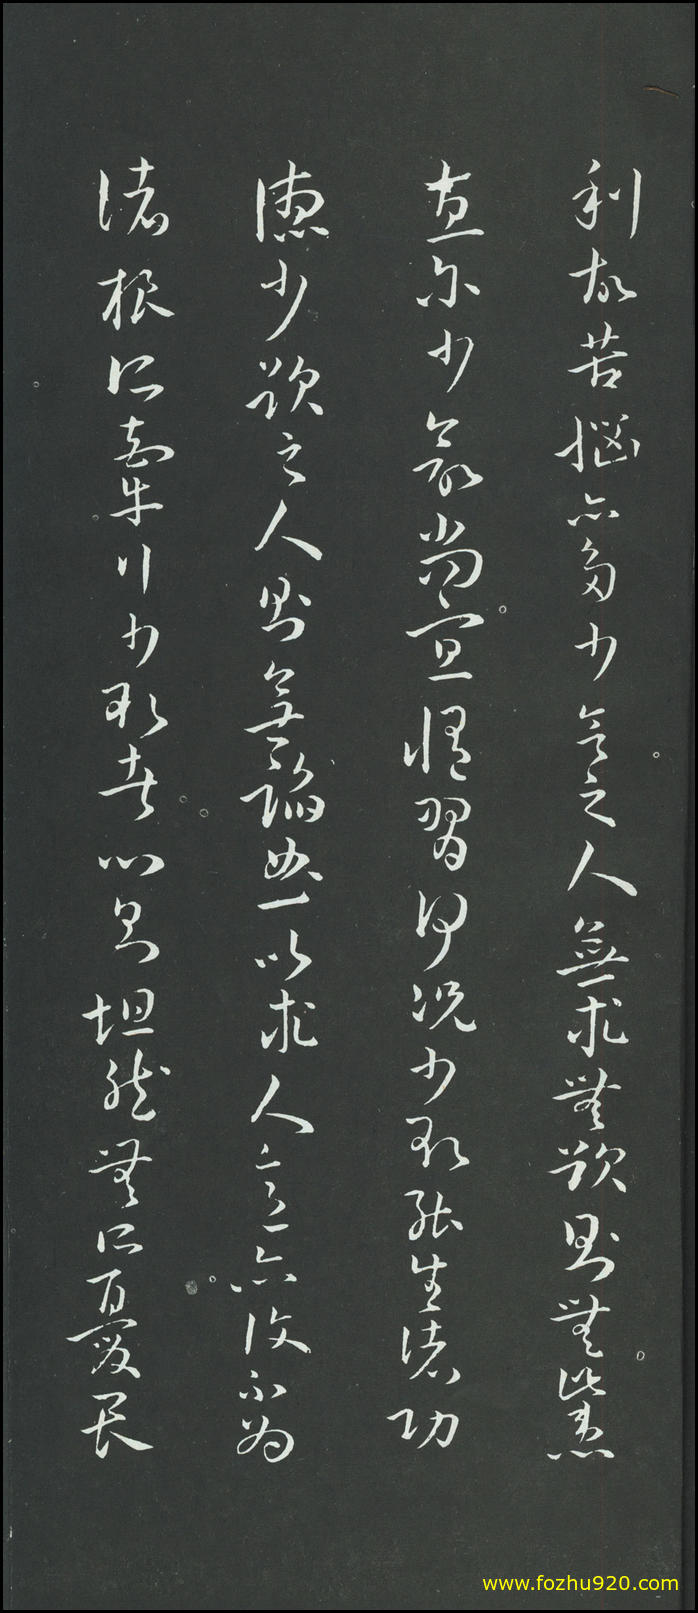 利故苦惱亦多少欲之人無求無欲則無此患
直尔少欲尚宜修習何況少欲能生諸功
德少欲之人則無諂曲以求人意亦復不為
諸根所牽行少欲者心則坦然無所憂畏
www.fozhu920.com